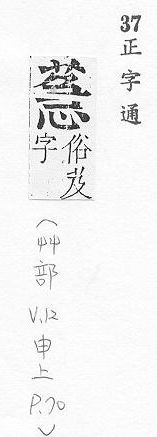 37正字通
俗
字
（艸部 V.12 申上 P.70）